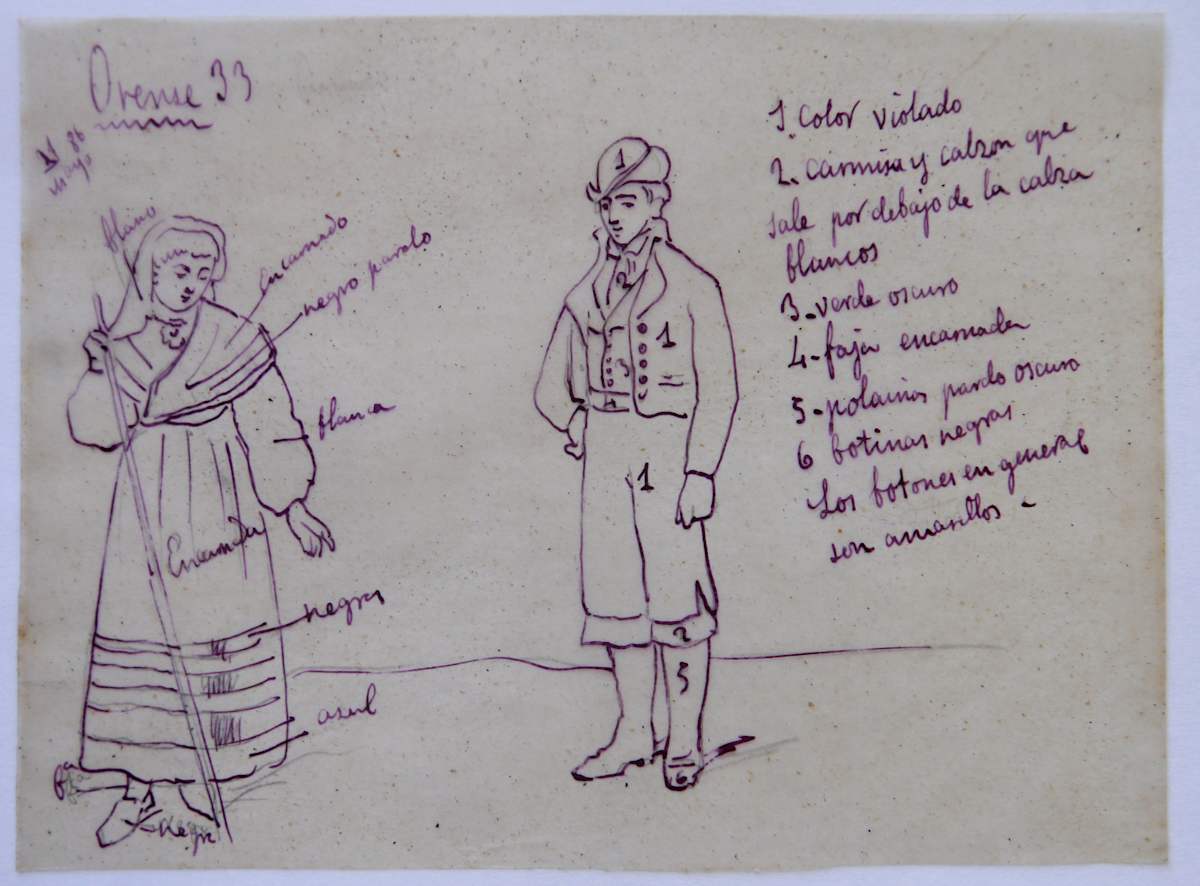 Orense 33
Mayo 86
blano
encarnado
negro pardo
blanca
Encarnada
negras
azul
negr
1
2
1
3
4
1
2
5
6
1. Color violado
2. camisa y calzon que
sale por debajo de la calza
blancos
3 - verde oscuro
4 - faja encarnada
5 - polainas pardo oscuro
6 botinas negras
Los botones en general
son amarillos -